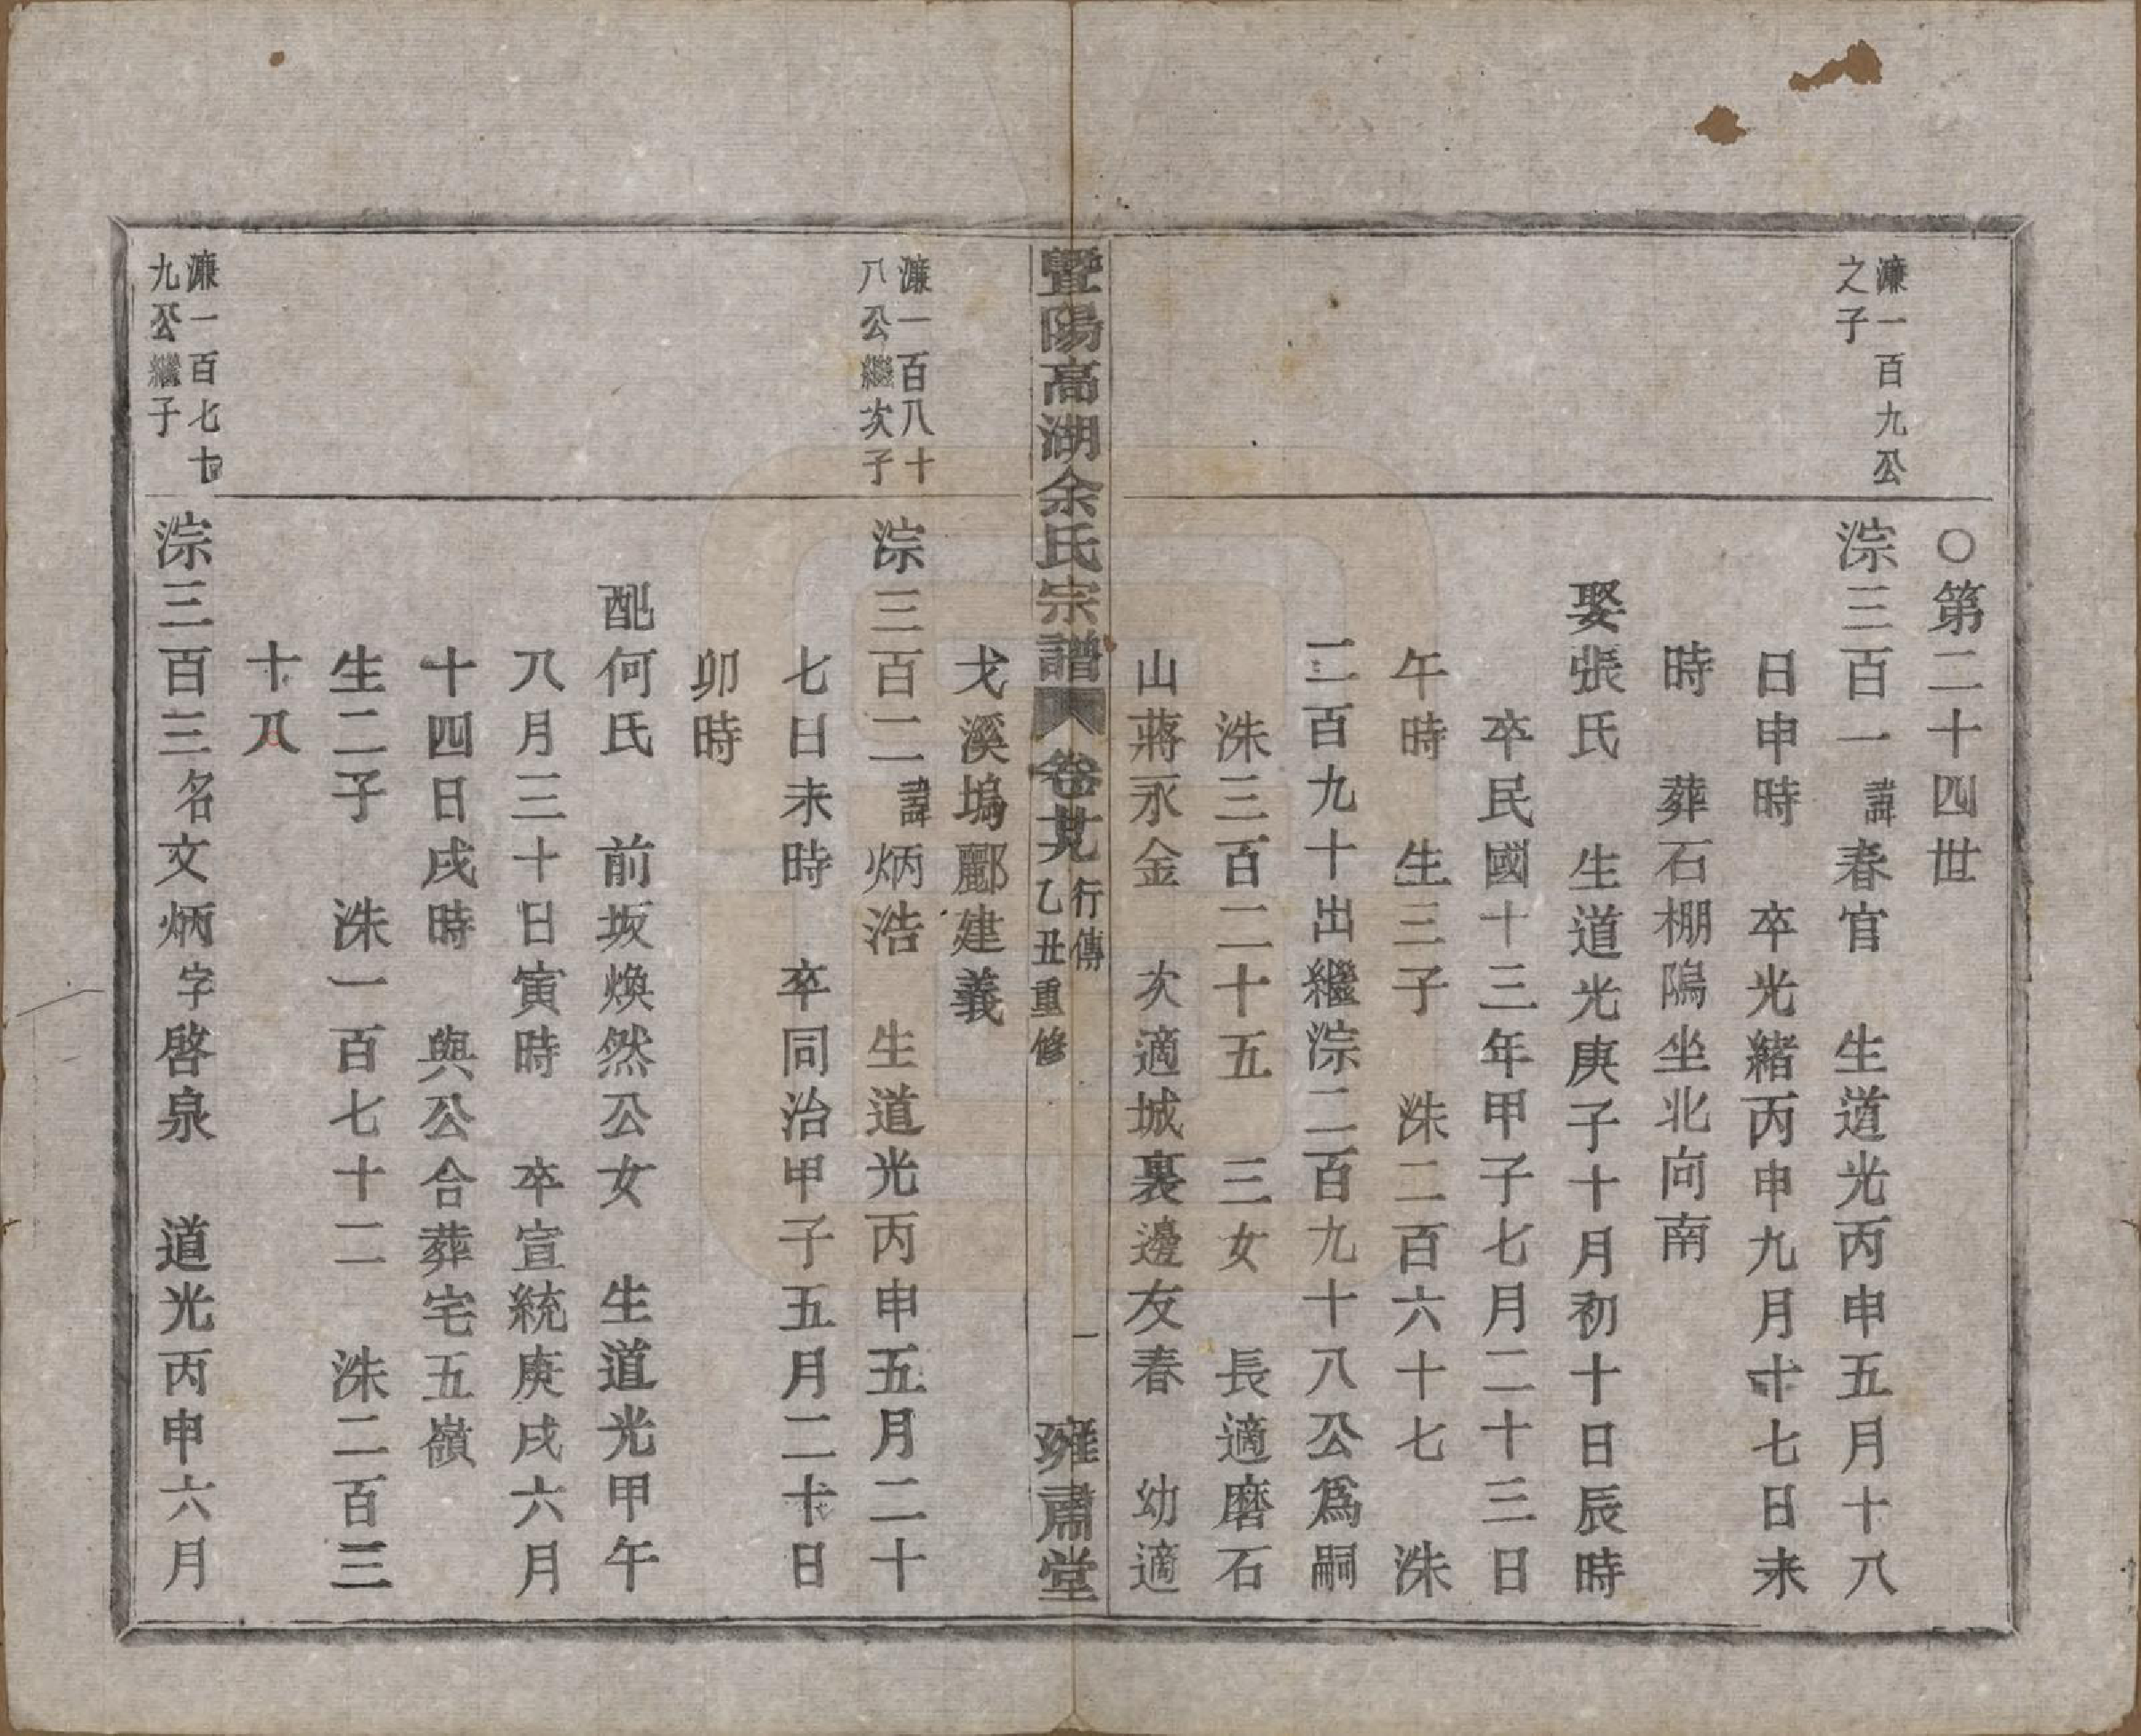 ○第二十四世
濂一百九公
之子
淙三百一諱春官　生道光丙申五月十八
日申時　卒光緒丙申九月十七日未
時　葬石棚隝坐北向南
娶張氏　生道光庚子十月初十日辰時
卒民國十三年甲子七月二十三日
午時　生三子　洙二百六十七　洙
二百九十出繼淙二百九十八公爲嗣
洙三百二十五　三女　長適磨石
山蔣永金　次適城裏邊友春　幼適
暨陽高湖余氏宗譜　卷廿九　行傳　乙丑重修　一　雍肅堂
戈溪塢酈建義
濂一百八十
八公繼次子
淙三百二諱炳浩　生道光丙申五月二十
七日未時　卒同治甲子五月二十日
卯時
配何氏　前坂煥然公女　生道光甲午
八月三十日寅時　卒宣統庚戌六月
十四日戌時　與公合葬宅五嶺
生二子　洙一百七十二　洙二百三
十八
濂一百七十
九公繼子
淙三百三名文炳字啓泉　道光丙申六月